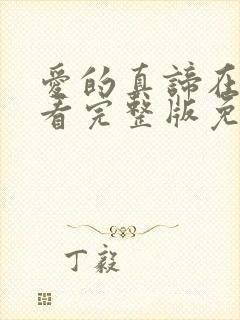 愛的真諦在
看完整版免
丁毅